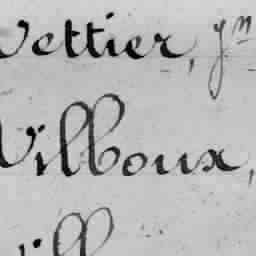 Vettier, yn
Vilboux,